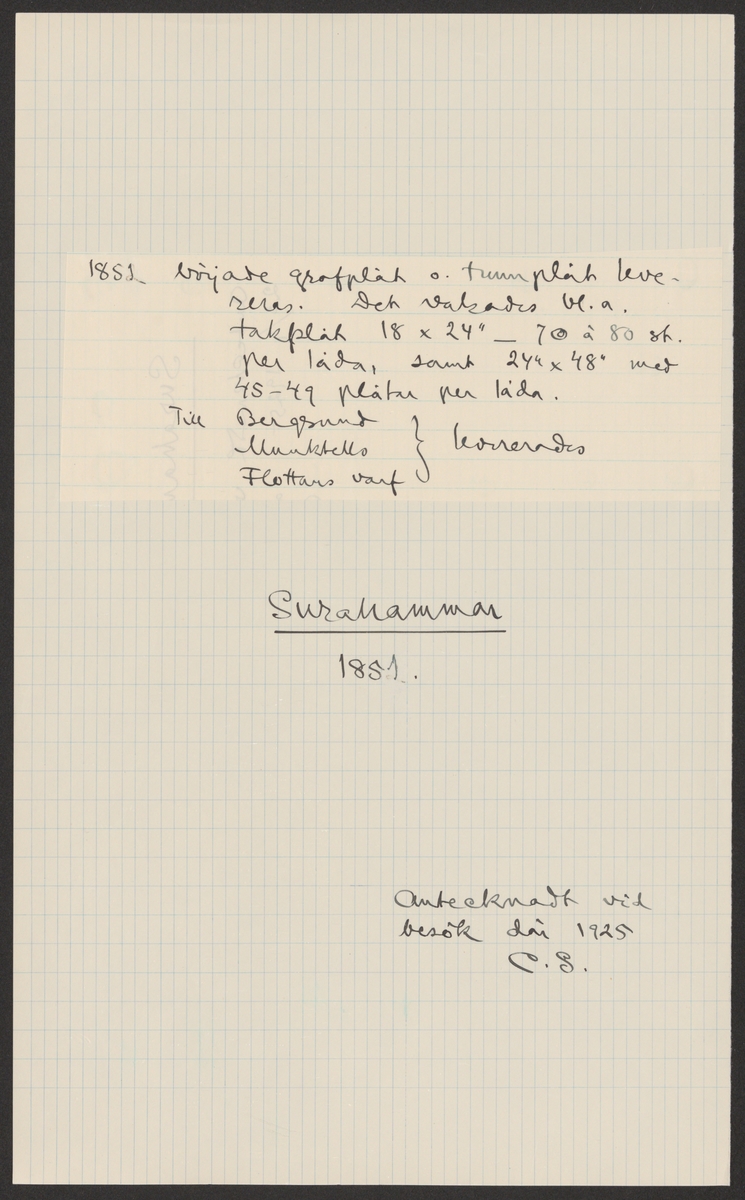 1851 började grofplåt o. tunnplåt leve-
reras. Det valsades bl.a.
takplåt 18 x 24" – 70 à 80 st.
per låda, samt 24" x 48" med
45-49 plåtar per låda.
Till Bergsund
Munktells } levererades
Flottans varf
Surahammar
1851.
Antecknadt vid
besök där 1925
C.S.